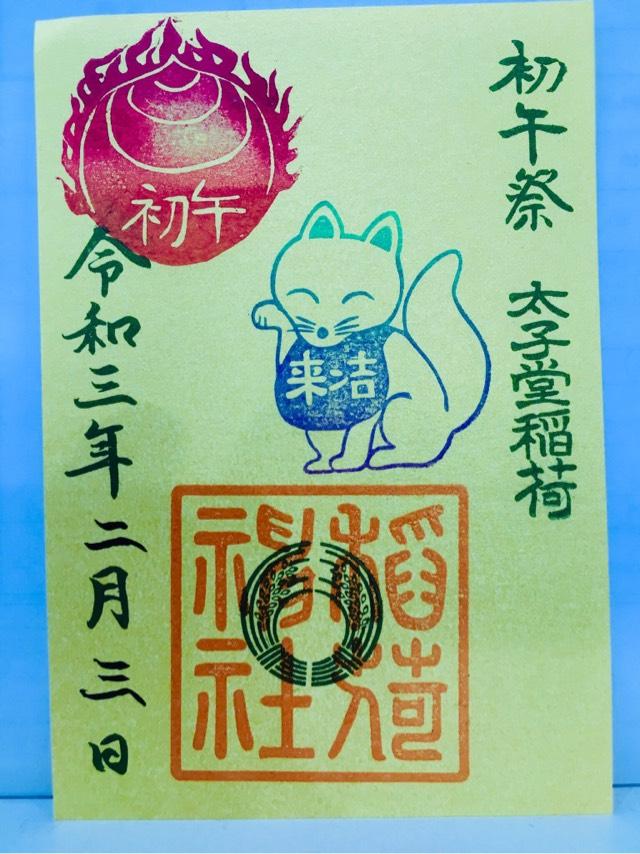 初午祭 太子堂稲荷
初午
来洁
稲荷
神社
令和三年二月三日